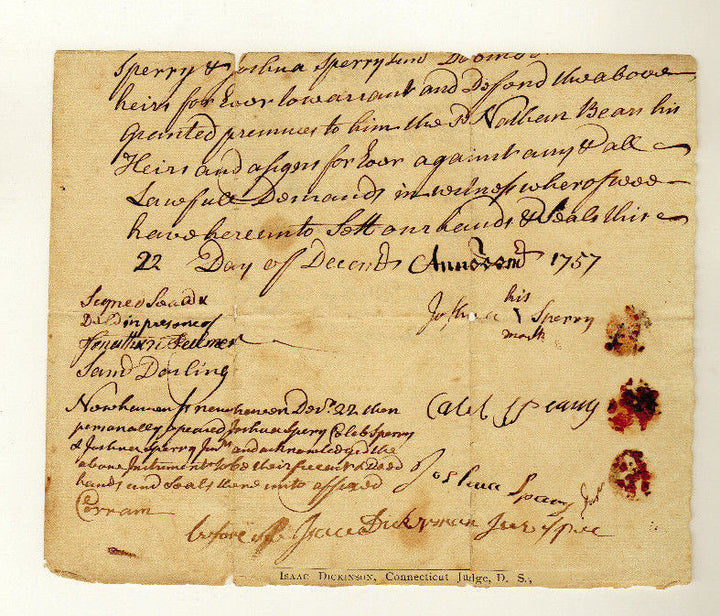 Sperry & Joshua Sperry Jun^r Do bind
heirs for Ever to warrant and Defend the above
granted premises to him the S^d Nathan Bears his
Heirs and assigns for Ever against any & all
Lawfull Demands in witness wherof wee
have hereunto Sett our hands & Seals this
22 Day of Decemb^r Annodom^i 1757
Signed Seald &
Deld in presence of
Jonathan
Sam^l Darling
his
Joshua \ Sperry
mark
Caleb Sperry
Joshua Sperry Jun^r
Newhaven ss newhaven Dec^r. 22 then
personally apeared Joshua Spery Caleb Sperry
& Joshua Sperry Jun^r and acknowledged the
above Instrument to be their free act & Deed
hands and Seals thereunto affixed
Corram
before me Isaac Dickerman Just pice
ISAAC DICKINSON, Connecticut Judge, D. S.,